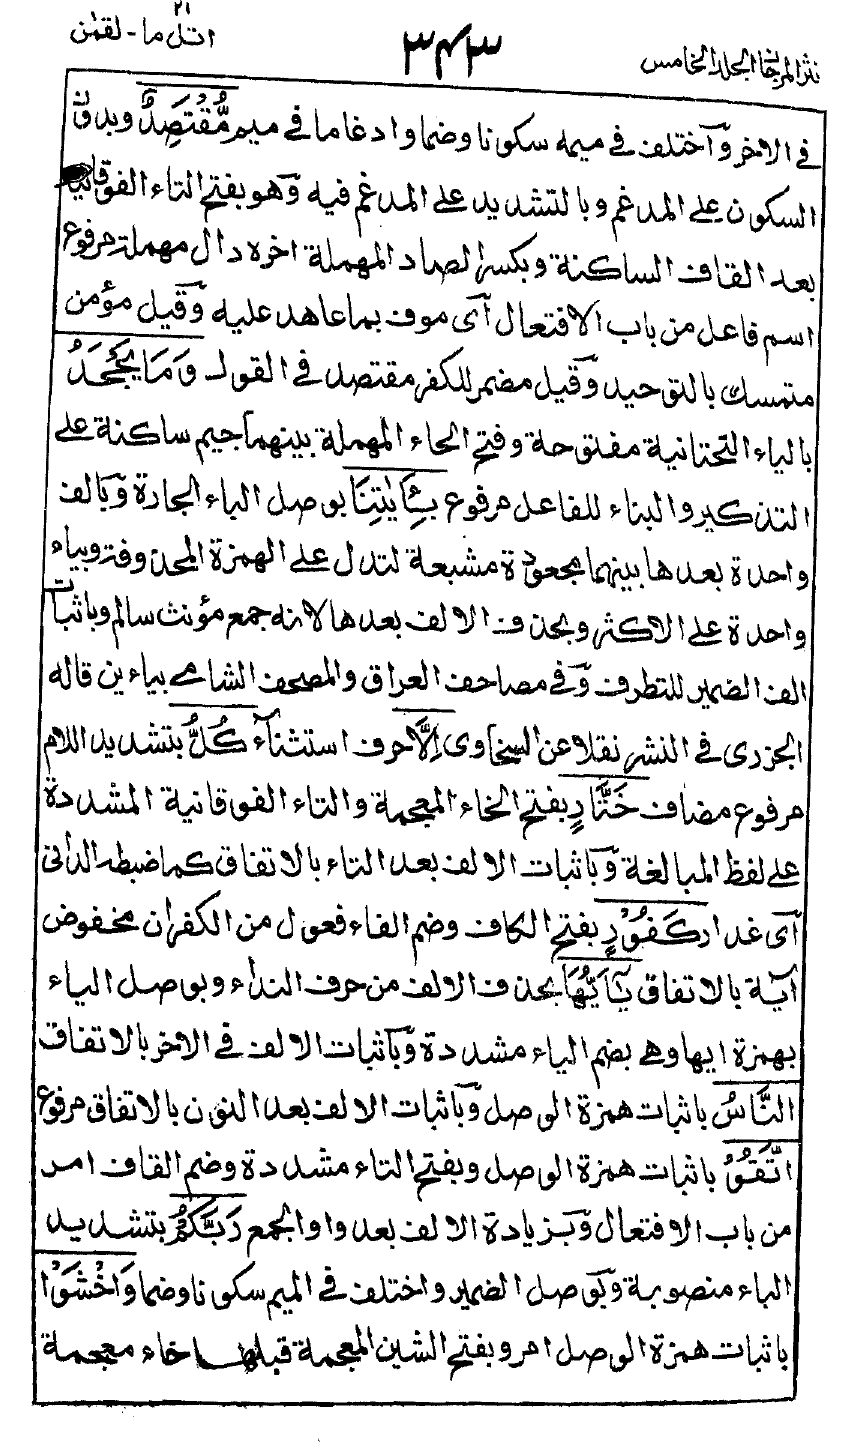 نثر المرجان الجلد الخامس
٣٤٣
اتل ما - لقمٰن
٢١
فى الاخر وَاختلف فى ميمه سكونا وضما وادغاما فى ميم مُّقْتَصِدٌ وبدون
السكون على المدغم وبالتشديد على المدغم فيه وَهو بفتح التاء الفوقانية
بعد القاف الساكنة وبكسر الصاد المهملة اخره دال مهملة مرفوع
اسم فاعل من باب الافتعال اَى موف بما عاهد عليه وَقيل مؤمن
متمسك بالتوحيد وَقيل مضمر للكفر مقتصد فى القول وَمَا يَجْحَدُ
بالياء التحتانية مفتوحة وفتح الحاء المهملة بينهما جيم ساكنة على
التذكير والبناء للفاعل مرفوع بِـَٔايٰتِنَا بوصل الباء الجارة وَبالف
واحدة بعدها بينهما مجعودة مشبعة لتدل على الهمزة المحذوفة وبياء
واحدة على الاكثر وبحذف الالف بعدها لانه جمع مؤنث سالم وباثبات
الف الضمير للتطرف وَفى مصاحف العراق والمصحف الشامى بياءين قاله
الجزرى فى النشر نقلا عن السخاوى اِلَّا حرف استثناء كُلُّ بتشديد اللام
مرفوع مضاف خَتَّارٍ بفتح الخاء المعجمة والتاء الفوقانية المشددة
على لفظ المبالغة وَباثبات الالف بعد التاء بالاتفاق كما ضبطه الدانى
اَى غدار كَفُوْرٍ بفتح الكاف وضم الفاء فعول من الكفران مخفوض
اٰية بالاتفاق يٰٓاَيُّهَا بحذف الالف من حرف النداء وبوصل الياء
بهمزة ايها وهى بضم الياء مشددة وَباثبات الالف فى الاخر بالاتفاق
النَّاسُ باثبات همزة الوصل وَباثبات الالف بعد النون بالاتفاق مرفوع
اتَّقُوْا باثبات همزة الوصل وبفتح التاء مشددة وضم القاف امر
من باب الافتعال وَبزيادة الالف بعد واو الجمع رَبَّكُمْ بتشديد
الباء منصوبة وَبوصل الضمير واختلف فى الميم سكونا وضما وَاخْشَوْا
باثبات همزة الوصل امر وبفتح الشين المعجمة قبلها خاء معجمة